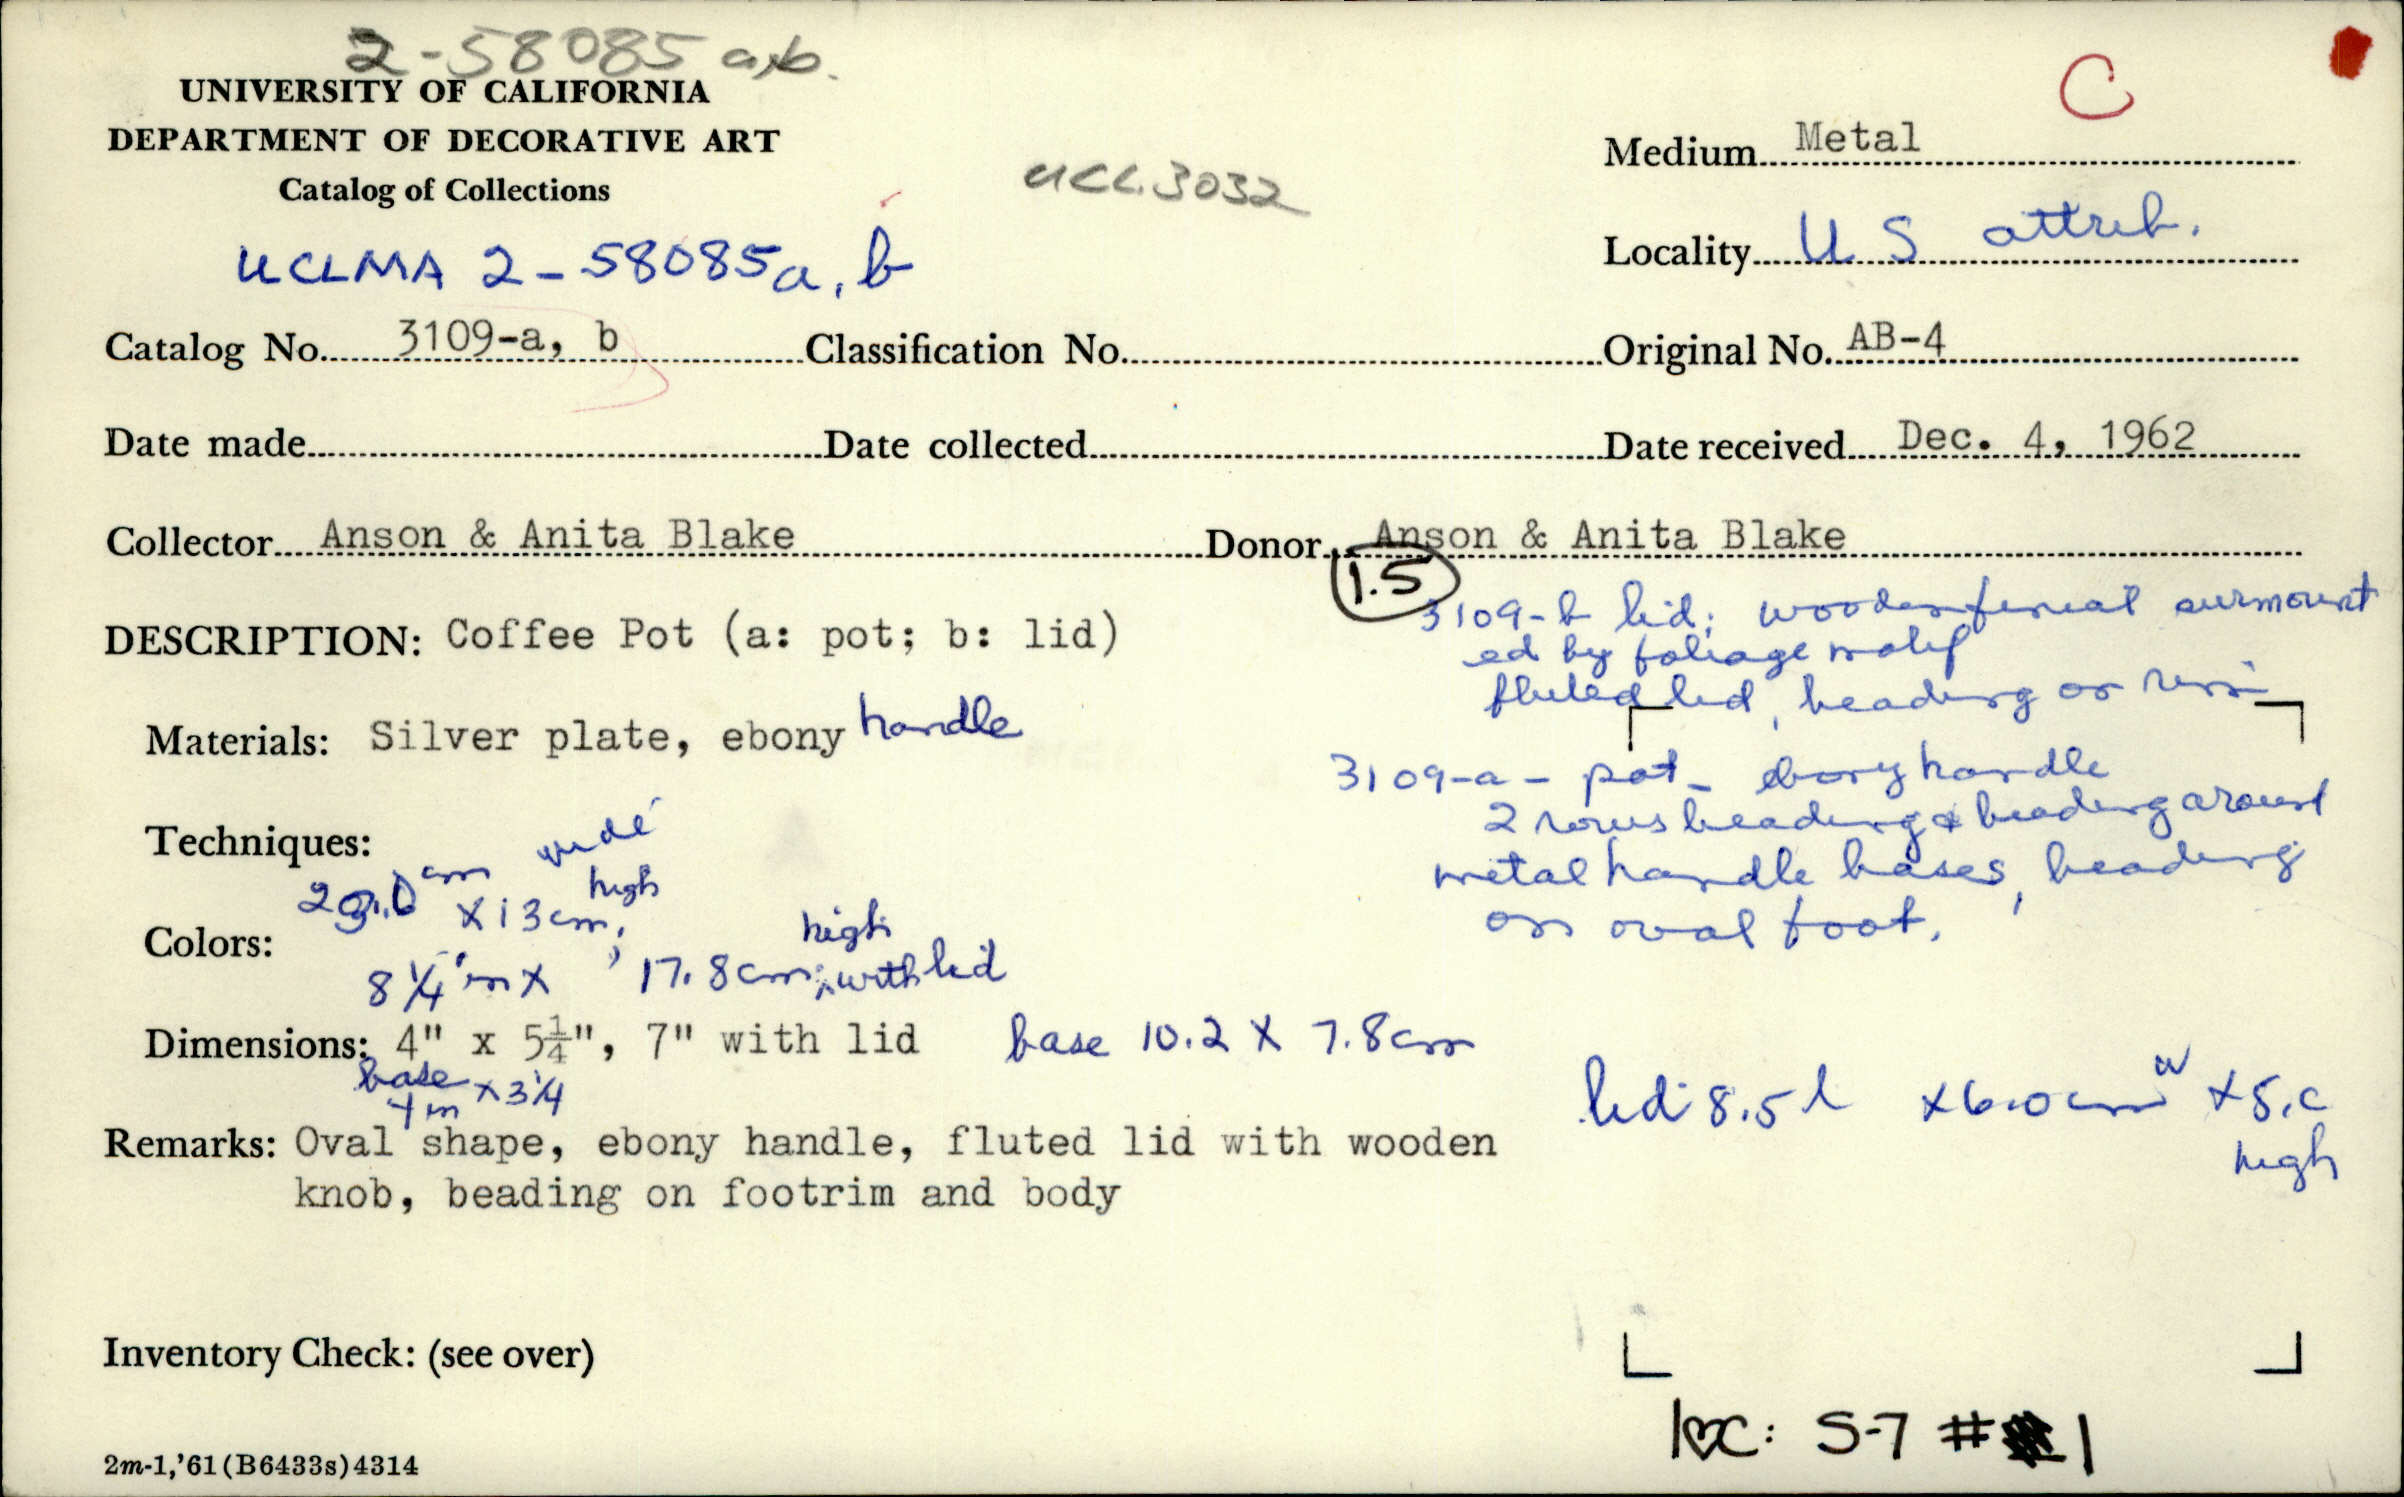 2-58085 a,b.
UNIVERSITY OF CALIFORNIA
DEPARTMENT OF DECORATIVE ART
Catalog of Collections
UCLMA 2-58085a,b
acc.3032
C
Medium Metal
Locality U S attrib.
Catalog No. 3109-a, b Classification No. Original No. AB-4
Date made Date collected Date received Dec. 4, 1962
Collector Anson & Anita Blake Donor Anson & Anita Blake
1.5
DESCRIPTION: Coffee Pot (a: pot; b: lid)
3109-b lid; wooden finial surmount
ed by foliage motif
fluted lid, beading on rim
Materials: Silver plate, ebony handle
3109-a - pot - ebony handle
2 rows beading & beading around
metal handle bases, beading
on oval foot.
Techniques:
cm wide
x 13 cm, high
Colors:
8 1/4 in x 17.8 cm high with lid
Dimensions: 4" x 5¼", 7" with lid base 10.2 x 7.8 cm
base 4 in x 3 1/4
lid 8.5 l x 6.0 cm w x 5.c
high
Remarks: Oval shape, ebony handle, fluted lid with wooden
knob, beading on footrim and body
Inventory Check: (see over)
2m-1,'61(B6433s)4314
: S-7 # 1